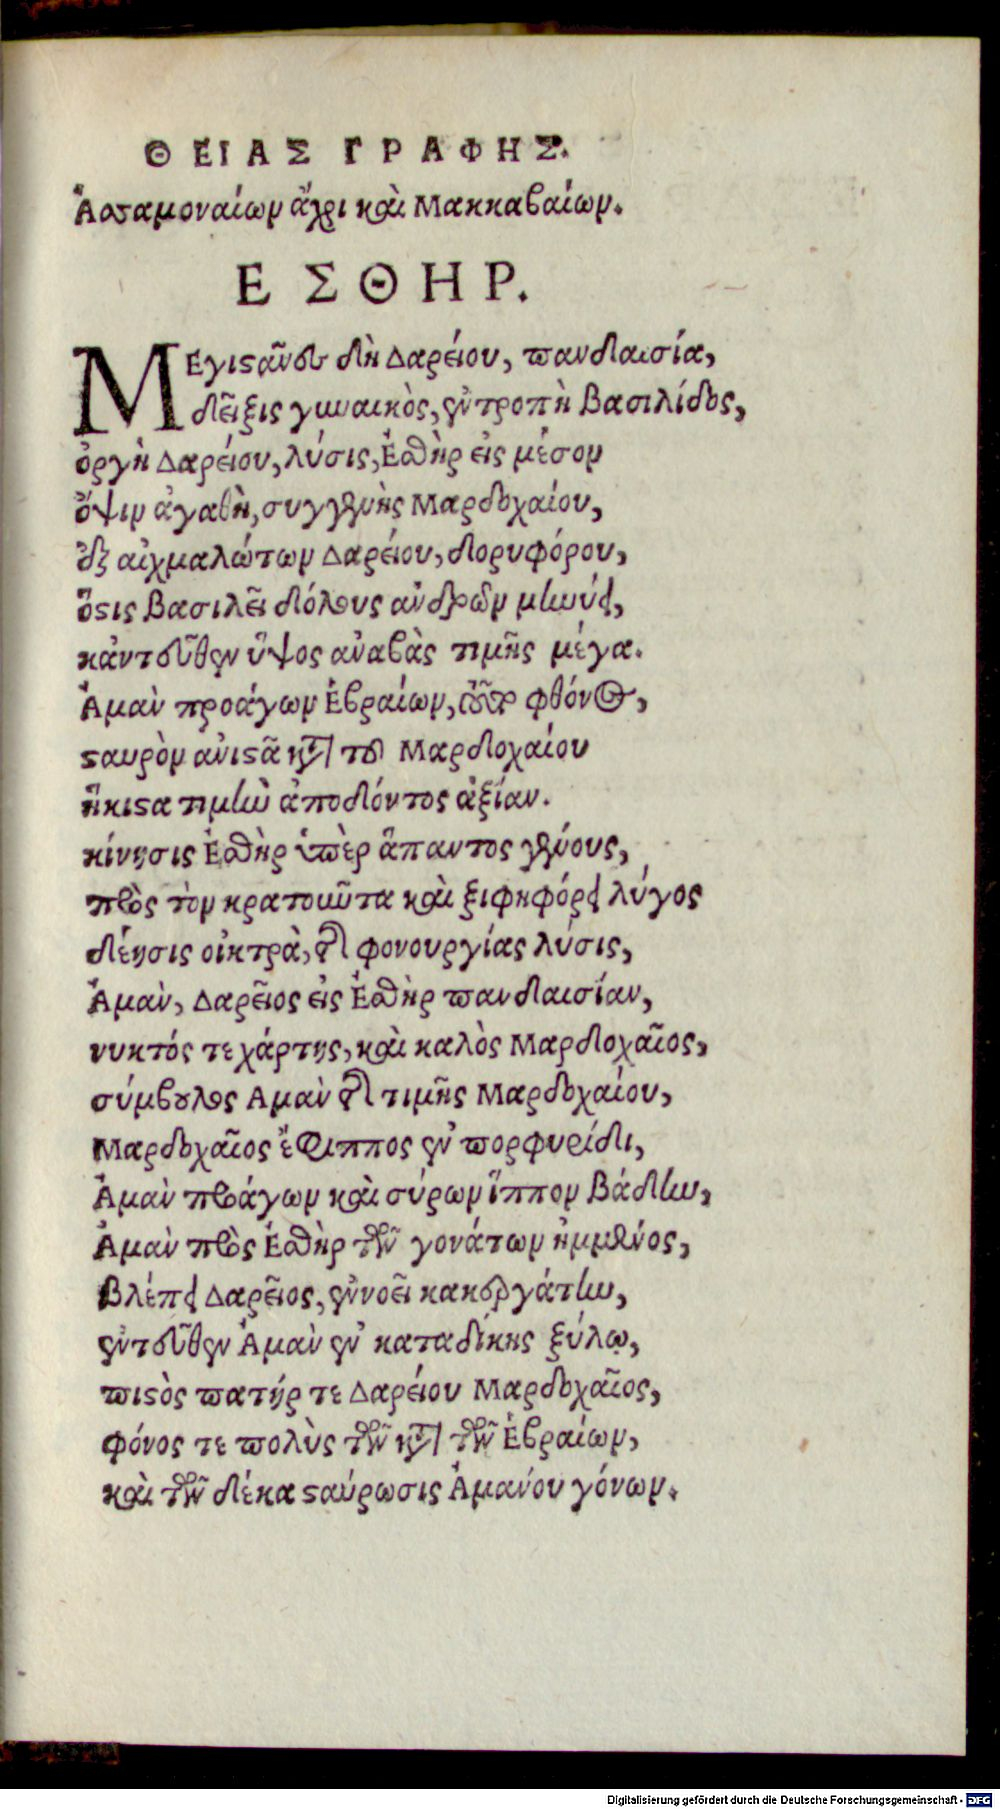 ΘΕΙΑΣ ΓΡΑΦΗΣ.
Ἀσσαμοναίων ἄχρι καὶ Μακκαβαίων.
ΕΣΘΗΡ.
ΜΕγιστᾶνσι δὴ Δαρείου, πανδαισία,
δεῖξις γυναικὸς, ἐντροπὴ βασιλίδος,
ὀργὴ Δαρείου, λύσις, Ἐσθὴρ εἰς μέσον
ὄψιν ἀγαθὴ, συγγενὴς Μαρδοχαίου,
ἐξ αἰχμαλώτων Δαρείου, δορυφόρου,
ὅστις βασιλεῖ δόλους ἀνδρῶν μηνύει,
κἀντεῦθεν ὕψος ἀναβὰς τιμῆς μέγα.
Ἀμὰν προάγων Ἑβραίων, οὗπερ φθόνος,
σταυρὸν ἀνιστᾶ κατὰ τοῦ Μαρδοχαίου
ἥκιστα τιμὴν ἀποδόντος ἀξίαν.
κίνησις Ἐσθὴρ ὑπὲρ ἅπαντος γένους,
πρὸς τὸν κρατοῦντα καὶ ξιφηφόρει λύγος
δέησις οἰκτρὰ, περὶ φονουργίας λύσις,
Ἀμὰν, Δαρεῖος εἰς Ἐσθὴρ πανδαισίαν,
νυκτός τε χάρτης, καὶ καλὸς Μαρδοχαῖος,
σύμβουλος Αμὰν περὶ τιμῆς Μαρδοχαίου,
Μαρδοχαῖος ἔφιππος ἐν πορφυρίδι,
Ἀμὰν προάγων καὶ σύρων ἵππον βάδην,
Ἀμὰν πρὸς Ἐσθὴρ τῶν γονάτων ἡμμένος,
βλέπει Δαρεῖος, ἐννοεῖ κακεργάτην,
ἐντεῦθεν Ἀμὰν ἐν καταδίκης ξύλῳ,
πιστὸς πατήρ τε Δαρείου Μαρδοχαῖος,
φόνος τε πολὺς τῶν κατὰ τῶν Ἑβραίων,
καὶ τῶν δέκα σταύρωσις Ἀμάνου γόνων.